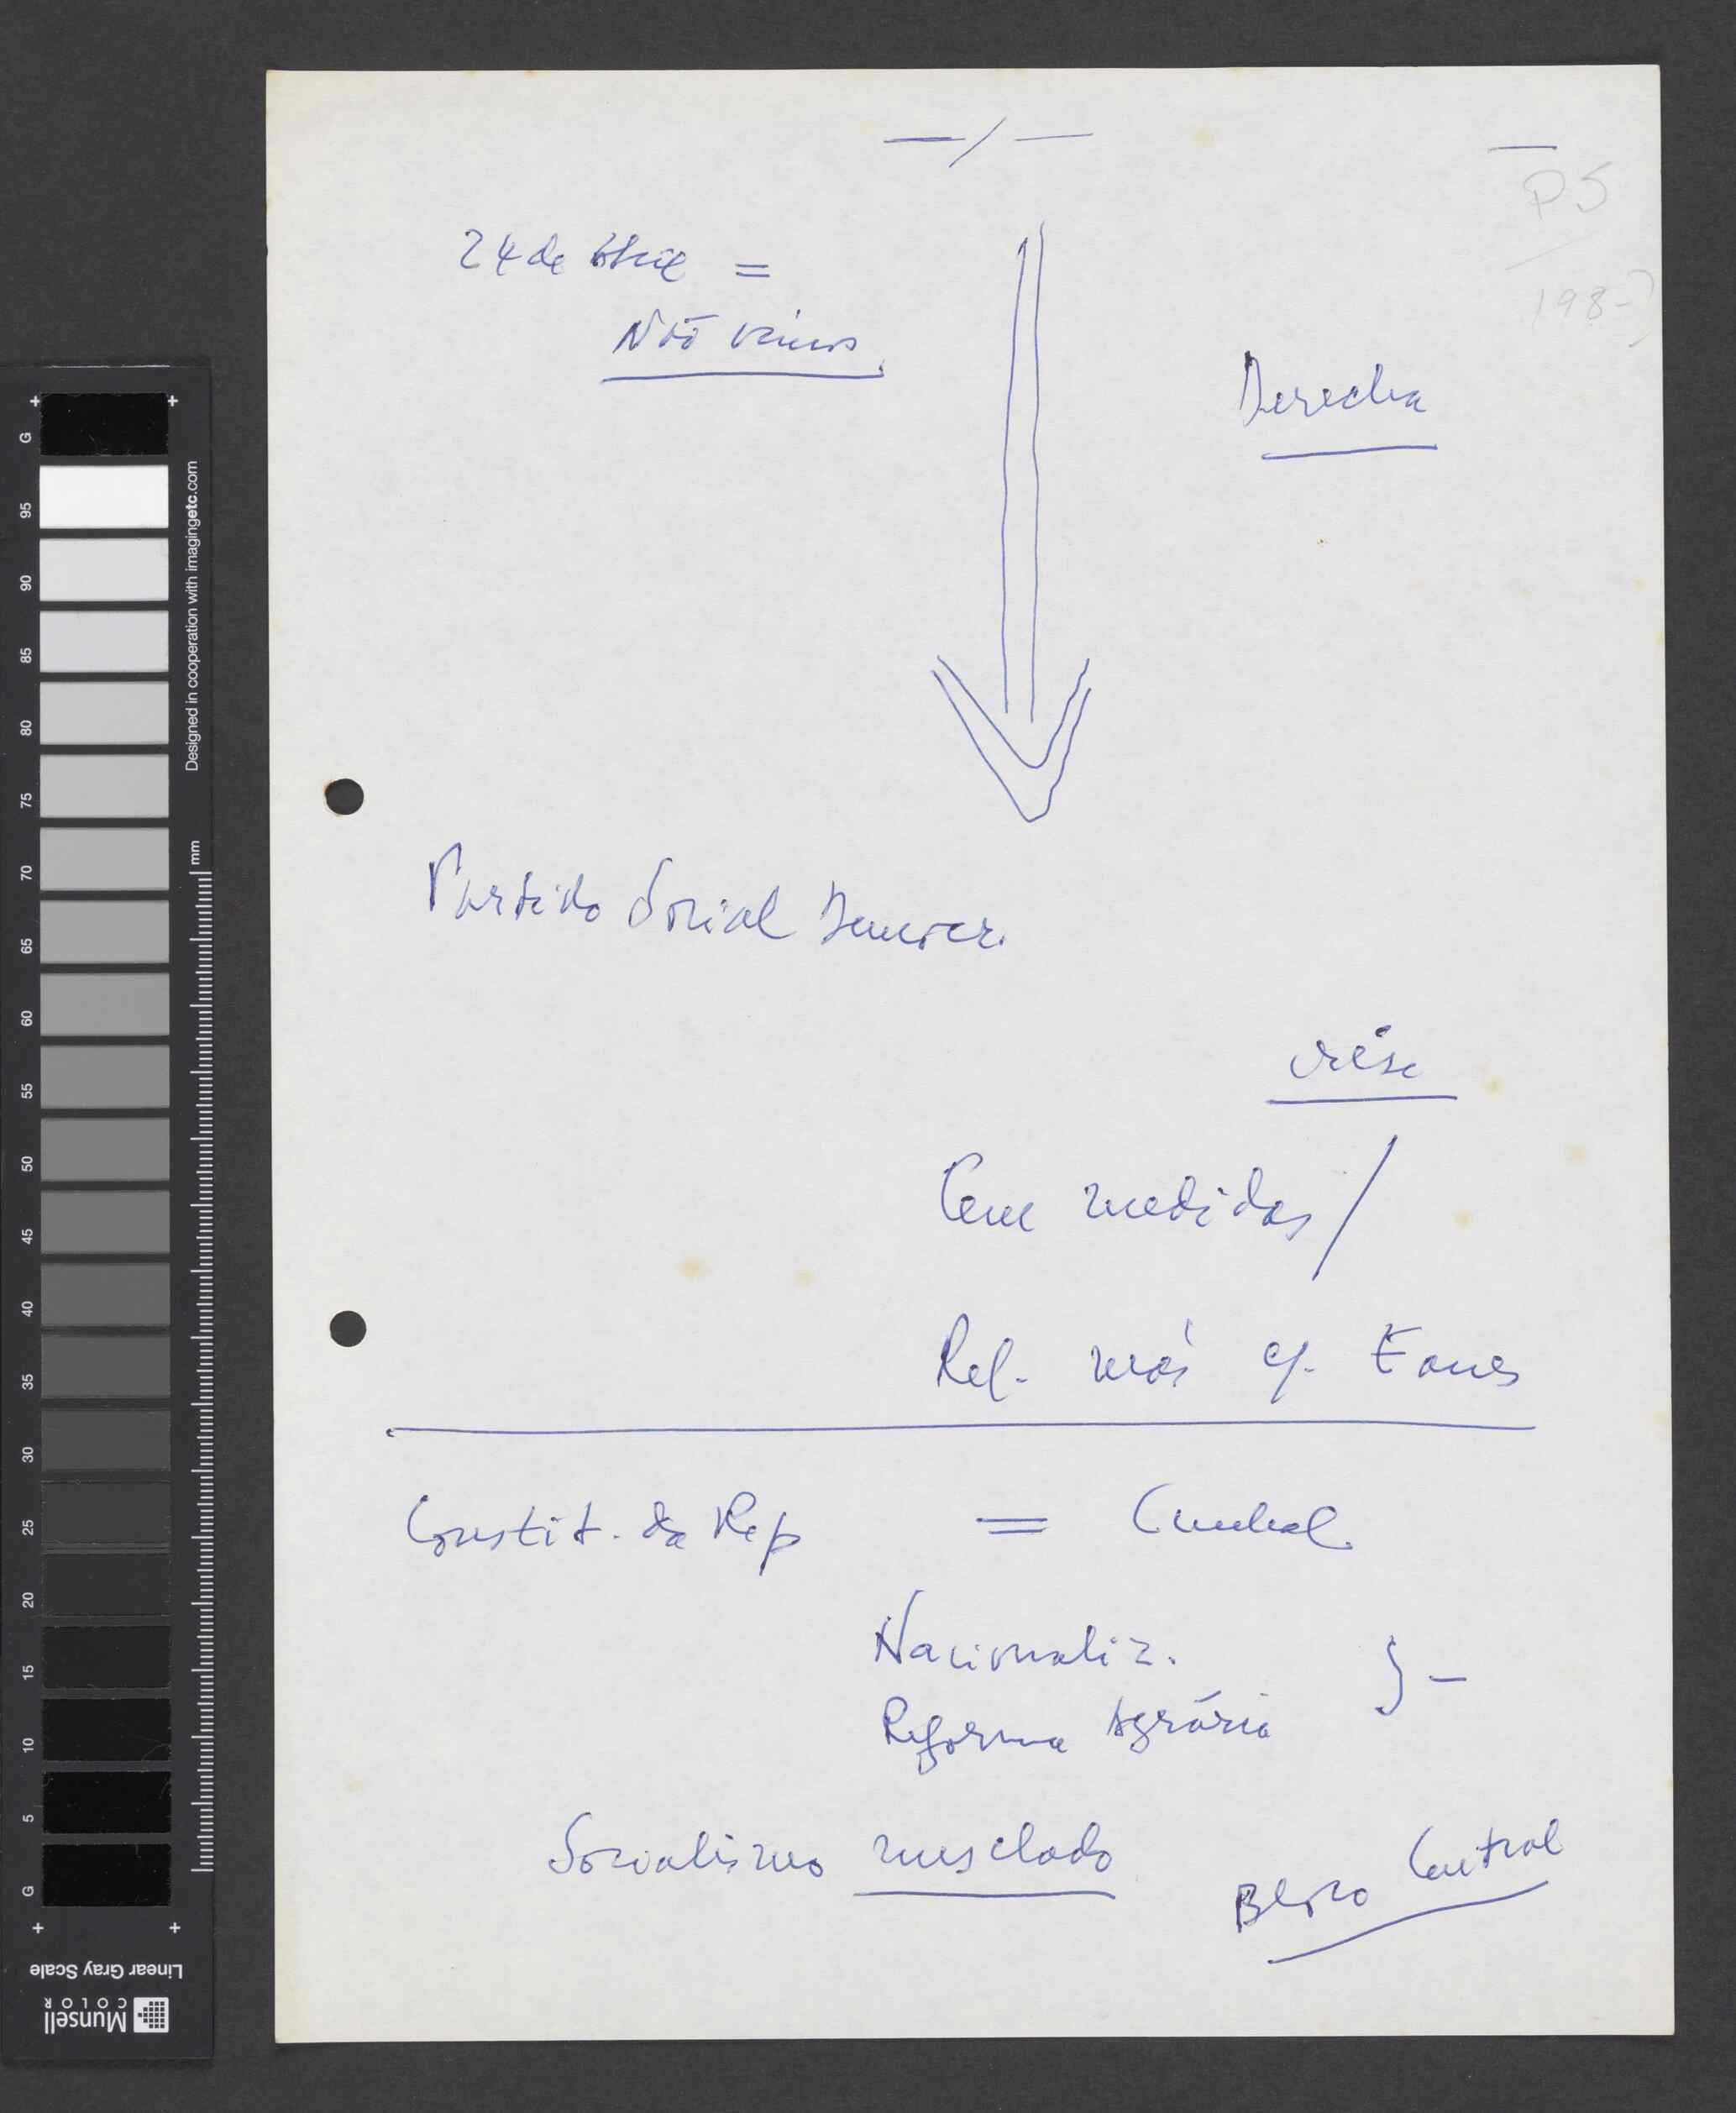 — / —
PS
198-?
24 de Abril =
Não
Derecha
Partido Social Democr.
crise
Cem medidas /
Rel. más c/. Eanes
Constit. da Rep = Cunhal.
Nacionaliz.
Reforma Agrária } —
Socialismo mesclado
Bloco Central
G
95
90
85
80
75
70
65
60
55
50
45
40
35
30
25
20
15
10
5
G
mm
Designed in cooperation with imagingetc.com
Linear Gray Scale
Munsell
COLOR